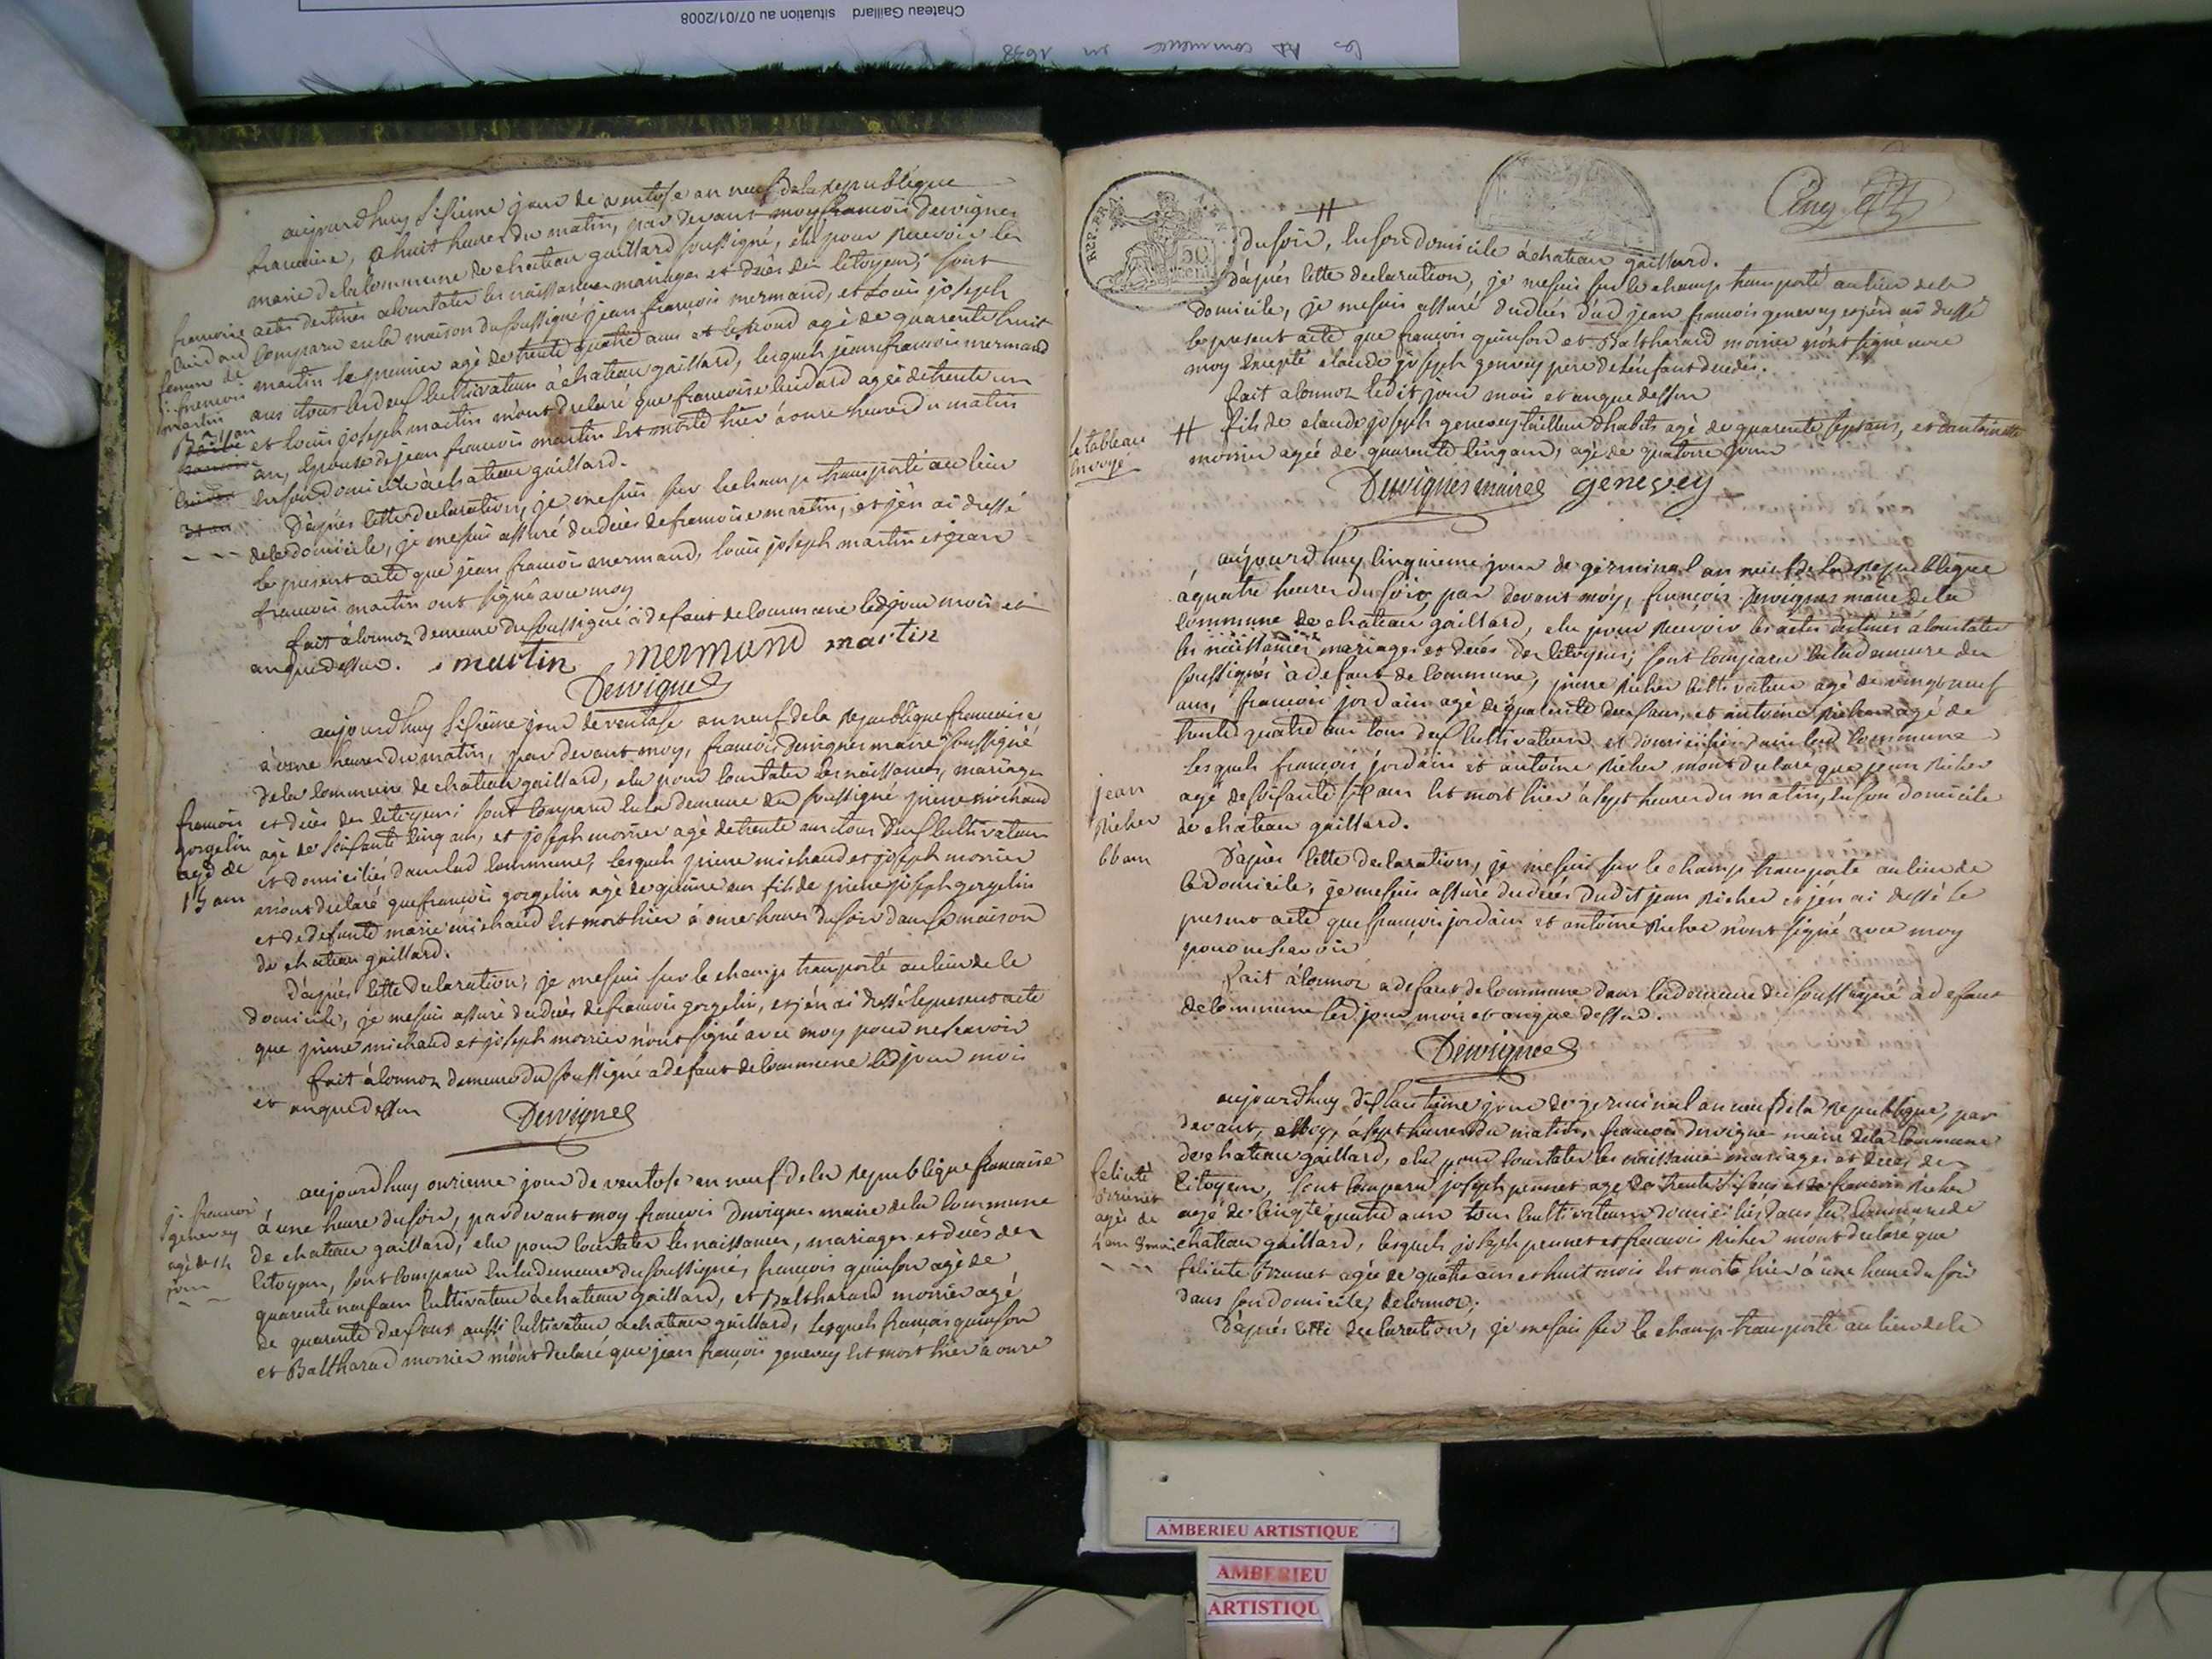 Chateau Gaillard situation au 07/01/2008
les commence en 1638
aujourdhuy sisieme jour de ventose an neuf de la republique
francaise, a huit heures du matin, par devant moy francois Dervignes
maire de la commune de chateau gaillard soussigné, elu pour recevoir les
actes destinés a constater les naissances mariages et decès des citoyens; sont
comparu en la maison du soussigné jean francois mermand, et louis joseph
martin le premier agé de trente quatre ans et le second agé de quarente huit
ans tous les deux cultivateurs à chateau gaillard, lesquels jean francois mermand
et louis joseph martin m'ont declaré que francoise agée de trente un
an, epouse de jean francois martin est morte hier à onze heures du matin
en son domicile à chateau gaillard.
D'après cette declaration, je me suis sur le champ transporté au lieu
de le domicile, je me suis assuré du decès de francoise martin, et j'en ai dressé
le present acte que jean francois mermand, louis joseph martin et jean
francois martin ont signé avec moy
fait à cormoz demeure du soussigné à defaut de commune led jour mois et
an que dessus. martin mermand martin
Dervignes
francoise
femme de
j. francois
martin
31 an
aujourdhuy sisieme jour de ventose an neuf de la republique francaise
à onze heures du matin, par devant moy, francois Dervignes maire soussigné
de la commune de chateau gaillard, elu pour constater les naissances, mariages
et decès des citoyens; sont comparu en la demeure du soussigné pierre michaud
agé de soisante cinq ans, et joseph morrier agé de trente ans tous deux cultivateurs
et domiciliés dans lad commune, lesquels pierre michaud et joseph morrier
m'ont declaré que francois gorgelin agé de quinze ans fils de pierre joseph gorgelin
et de defunte marie michaud est mort hier à onze heures du soir dans sa maison
de chateau gaillard.
D'après cette declaration, je me suis sur le champ transporté au lieu de le
domicile, je me suis assuré du decès de francois gorgelin, et j'en ai dressé le present acte
que pierre michaud et joseph morrier n'ont signé avec moy pour ne scavoir
fait à cormoz demeure du soussigné a defaut de commune led jour mois
et an que dessus Dervignes
francois
gorgelin
agé de
15 ans
aujourdhuy onzieme jour de ventose an neuf de la republique francaise
à une heure du soir, par devant moy francois Dervignes maire de la commune
de chateau gaillard, elu pour constater les naissances, mariages et decès des
citoyens, sont comparu en la demeure du soussigné, francois quinson agé de
quarente neuf ans cultivateur a chateau gaillard, et Balthazard morrier agé
de quarente deux ans aussi cultivateur a chateau gaillard, lesquels francois quinson
et Balthazard morrier m'ont declaré que jean francois genevey est mort hier à onze
j. francois
genevey
agé de 14
jours
REP. FRA.
50
cent.
Cinq
du soir, en son domicile à chateau gaillard.
D'après cette declaration, je me suis sur le champ transporté au lieu de le
domicile, je me suis assuré du decès dud jean francois genevey et j'en ai dressé
le present acte que francois quinson et Balthazard morrier n'ont signé avec
moy excepté claude joseph genevey pere de l'enfant decedé.
fait a cormoz ledit jour mois et an que dessus
# fils de claude joseph genevey tailleur d'habits agé de quarente sept ans, et d'antoinette
morrier agée de quarente cinq ans, agé de quatorze jours
Dervignes maire genevey
le tableau
envoyé
aujourdhuy cinquieme jour de germinal an neuf de la republique
à quatre heures du soir, par devant moy, francois Dervignes maire de la
commune de chateau gaillard, elu pour recevoir les actes destinés à constater
les naissances mariages et decès des citoyens; sont comparu en la demeure du
soussigné à defaut de commune, pierre Richer cultivateur agé de vingt neuf
ans, francois jordain agé de quarente deux ans, et antoine Richer agé de
trente quatre ans tous deux cultivateurs et domiciliés dans lad commune
lesquels francois jordain et antoine Richer m'ont declaré que jean Richer
agé de soisante six ans est mort hier à sept heures du matin, en son domicile
de chateau gaillard.
D'après cette declaration, je me suis sur le champ transporté au lieu de
le domicile, je me suis assuré du decès dudit jean Richer et j'en ai dressé le
present acte que francois jordain et antoine Richer n'ont signé avec moy
pour ne scavoir
fait à cormoz a defaut de commune dans la demeure du soussigné à defaut
de commune led jour mois et an que dessus.
Dervignes
jean
Richer
66 ans
aujourdhuy dix huitieme jour de germinal an neuf de la republique, par
devant, moy, à sept heures du matin, francois dervigne maire de la commune
de chateau gaillard, elu pour constater les naissance mariages et decès des
citoyens, sont comparu joseph pennet agé de trente six ans et francois Richer
agé de vingt quatre ans tous cultivateurs domiciliés dans la commune de
chateau gaillard, lesquels joseph pennet et francois Richer m'ont declaré que
felicité Brunet agée de quatre ans et huit mois est morte hier à une heure du soir
dans son domicile, de cormoz;
D'après cette declaration, je me suis sur le champ transporté au lieu de le
felicité
brunet
agée de
4 ans 8 mois
AMBERIEU ARTISTIQUE
AMBERIEU
ARTISTIQU